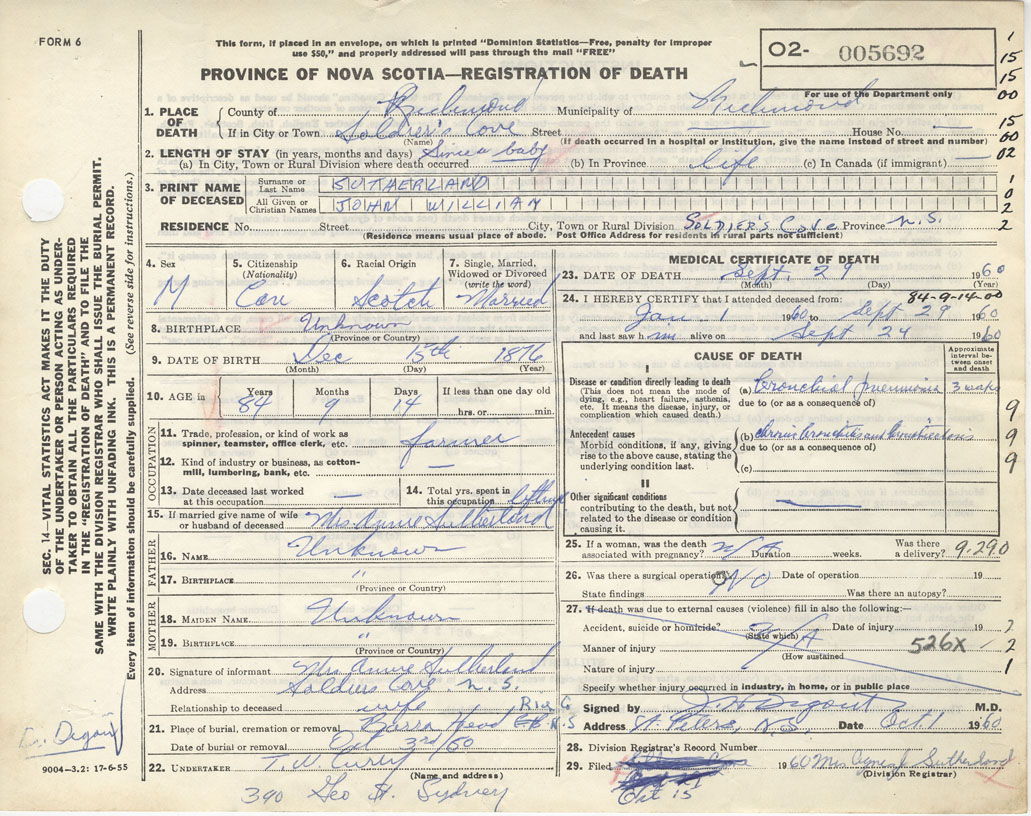 FORM 6
This form, if placed in an envelope, on which is printed "Dominion Statistics—Free, penalty for improper
use $50," and properly addressed will pass through the mail "FREE"
PROVINCE OF NOVA SCOTIA—REGISTRATION OF DEATH
O2- 005692
For use of the Department only
1
15
15
00
15
60
02
1
0
2
2
1. PLACE OF DEATH
County of Richmond Municipality of Richmond
If in City or Town Soldier's Cove Street — House No. —
(Name) (If death occurred in a hospital or institution, give the name instead of street and number)
2. LENGTH OF STAY (in years, months and days) Since a baby
(a) In City, Town or Rural Division where death occurred (b) In Province life (c) In Canada (if immigrant) —
3. PRINT NAME OF DECEASED
Surname or Last Name SUTHERLAND
All Given or Christian Names JOHN WILLIAM
RESIDENCE No. Street City, Town or Rural Division SOLDIER'S Cove Province N.S.
(Residence means usual place of abode. Post Office Address for residents in rural parts not sufficient)
4. Sex M
5. Citizenship (Nationality) Can
6. Racial Origin Scotch
7. Single, Married, Widowed or Divorced (write the word) Married
8. BIRTHPLACE Unknown
(Province or Country)
9. DATE OF BIRTH Dec 15th 1876
(Month) (Day) (Year)
10. AGE in Years 84 Months 9 Days 14 If less than one day old hrs. or min.
OCCUPATION
11. Trade, profession, or kind of work as spinner, teamster, office clerk, etc. farmer
12. Kind of industry or business, as cotton-mill, lumbering, bank, etc. —
13. Date deceased last worked at this occupation —
14. Total yrs. spent in this occupation lifetime
15. If married give name of wife or husband of deceased Mrs. Annie Sutherland
FATHER
16. NAME Unknown
17. BIRTHPLACE "
(Province or Country)
MOTHER
18. MAIDEN NAME Unknown
19. BIRTHPLACE "
(Province or Country)
20. Signature of informant Mrs. Annie Sutherland
Address Soldiers Cove N.S.
Relationship to deceased wife
21. Place of burial, cremation or removal Barra Head
Date of burial or removal Oct 3rd/60
22. UNDERTAKER T. W. Curry
(Name and address)
390 Geo St. Sydney
MEDICAL CERTIFICATE OF DEATH
23. DATE OF DEATH Sept 29 1960
(Month) (Day) (Year)
84-9-14-00
24. I HEREBY CERTIFY that I attended deceased from:
Jan. 1 1960 to Sept 29 1960
and last saw him alive on Sept 24 1960
CAUSE OF DEATH
Approximate interval between onset and death
I
Disease or condition directly leading to death
(This does not mean the mode of dying, e.g., heart failure, asthenia, etc. It means the disease, injury, or complication which caused death.)
(a) Bronchial pneumonia 3 weeks
due to (or as a consequence of)
Antecedent causes
Morbid conditions, if any, giving rise to the above cause, stating the underlying condition last.
(b) Chronic bronchitis and bronchiectasis
due to (or as a consequence of)
(c)
9
9
9
II
Other significant conditions
contributing to the death, but not related to the disease or condition causing it.
—
25. If a woman, was the death associated with pregnancy? N/A Duration weeks. Was there a delivery? 9.290
26. Was there a surgical operation? NO Date of operation 19
State findings Was there an autopsy?
27. If death was due to external causes (violence) fill in also the following:—
Accident, suicide or homicide? N/A Date of injury 19
(State which)
Manner of injury 526X
(How sustained)
Nature of injury
2
2
1
Specify whether injury occurred in industry, in home, or in public place
Signed by M.D.
Address St. Peters, N.S. Date Oct 1 1960
28. Division Registrar's Record Number
29. Filed Oct 15 1960 Mrs Agnes J Sutherland
(Division Registrar)
SEC. 14—VITAL STATISTICS ACT MAKES IT THE DUTY
OF THE UNDERTAKER OR PERSON ACTING AS UNDER-
TAKER TO OBTAIN ALL THE PARTICULARS REQUIRED
IN THE "REGISTRATION OF DEATH" AND TO FILE THE
SAME WITH THE DIVISION REGISTRAR WHO SHALL ISSUE THE BURIAL PERMIT.
WRITE PLAINLY WITH UNFADING INK. THIS IS A PERMANENT RECORD.
Every item of information should be carefully supplied. (See reverse side for instructions.)
9004-3.2: 17-6-55